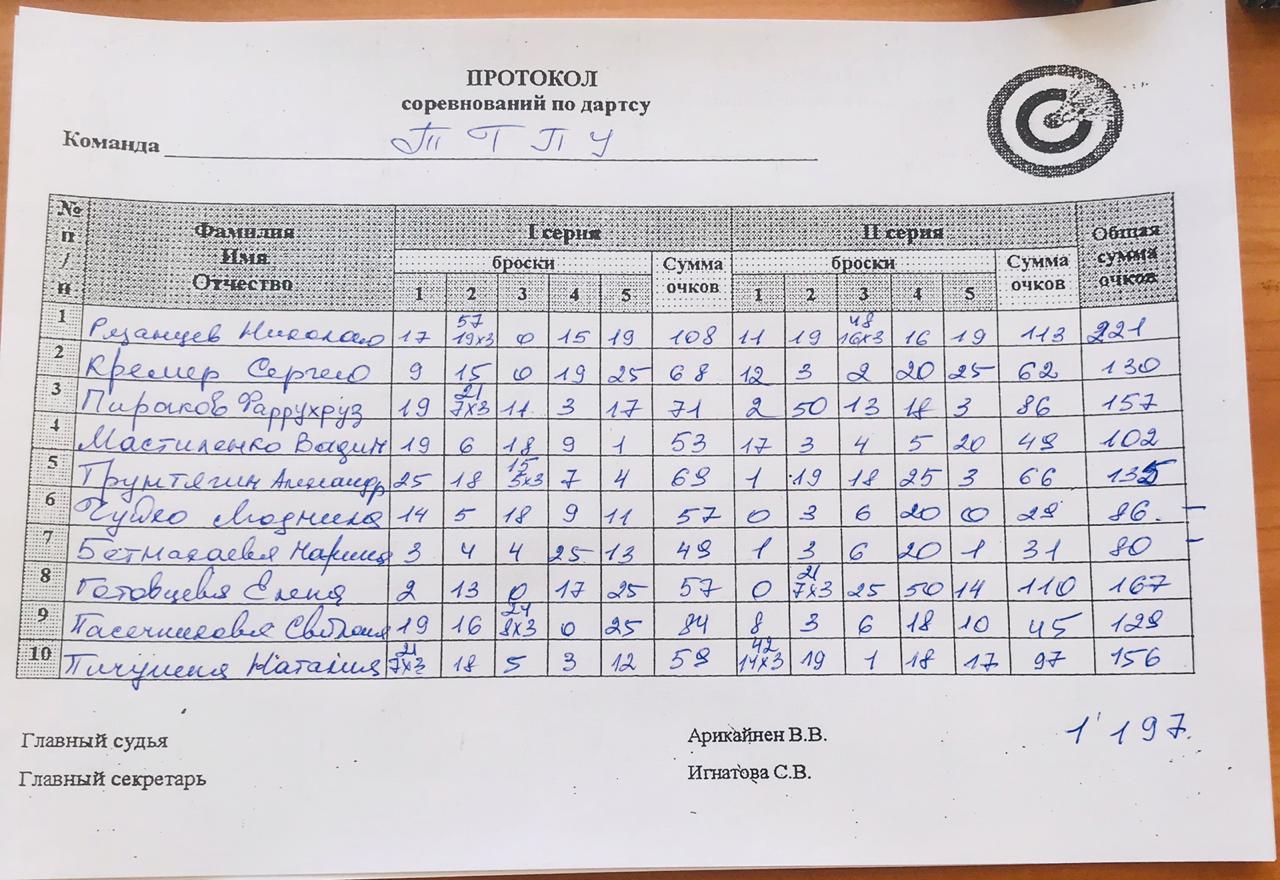 ПРОТОКОЛ
соревнований по дартсу
Команда ТГПУ
№ п/п Фамилия Имя Отчество I серия II серия Общая сумма очков
броски Сумма очков броски Сумма очков
1 2 3 4 5 1 2 3 4 5
1 Рязанцев Николай 17 57 19х3 0 15 19 108 11 19 48 16х3 16 19 113 221
2 Кремер Сергей 9 15 0 19 25 68 12 3 2 20 25 62 130
3 Пираков Фаррухруз 19 21 7х3 11 3 17 71 2 50 13 18 3 86 157
4 Мастиленко Вадим 19 6 18 9 1 53 17 3 4 5 20 49 102
5 Трунтягин Александр 25 18 15 5х3 7 4 69 1 19 18 25 3 66 135
6 Чудко Людмила 14 5 18 9 11 57 0 3 6 20 0 29 86
7 Марина 3 4 4 25 13 49 1 3 6 20 1 31 80
8 Готовцева Елена 2 13 0 17 25 57 0 21 7х3 25 50 14 110 167
9 Пасечникова Светлана 19 16 24 8х3 0 25 84 8 3 6 18 10 45 129
10 Пичугина Наталия 21 7х3 18 5 3 12 59 42 14х3 19 1 18 17 97 156
Главный судья Арикайнен В.В. 1'197.
Главный секретарь Игнатова С.В.